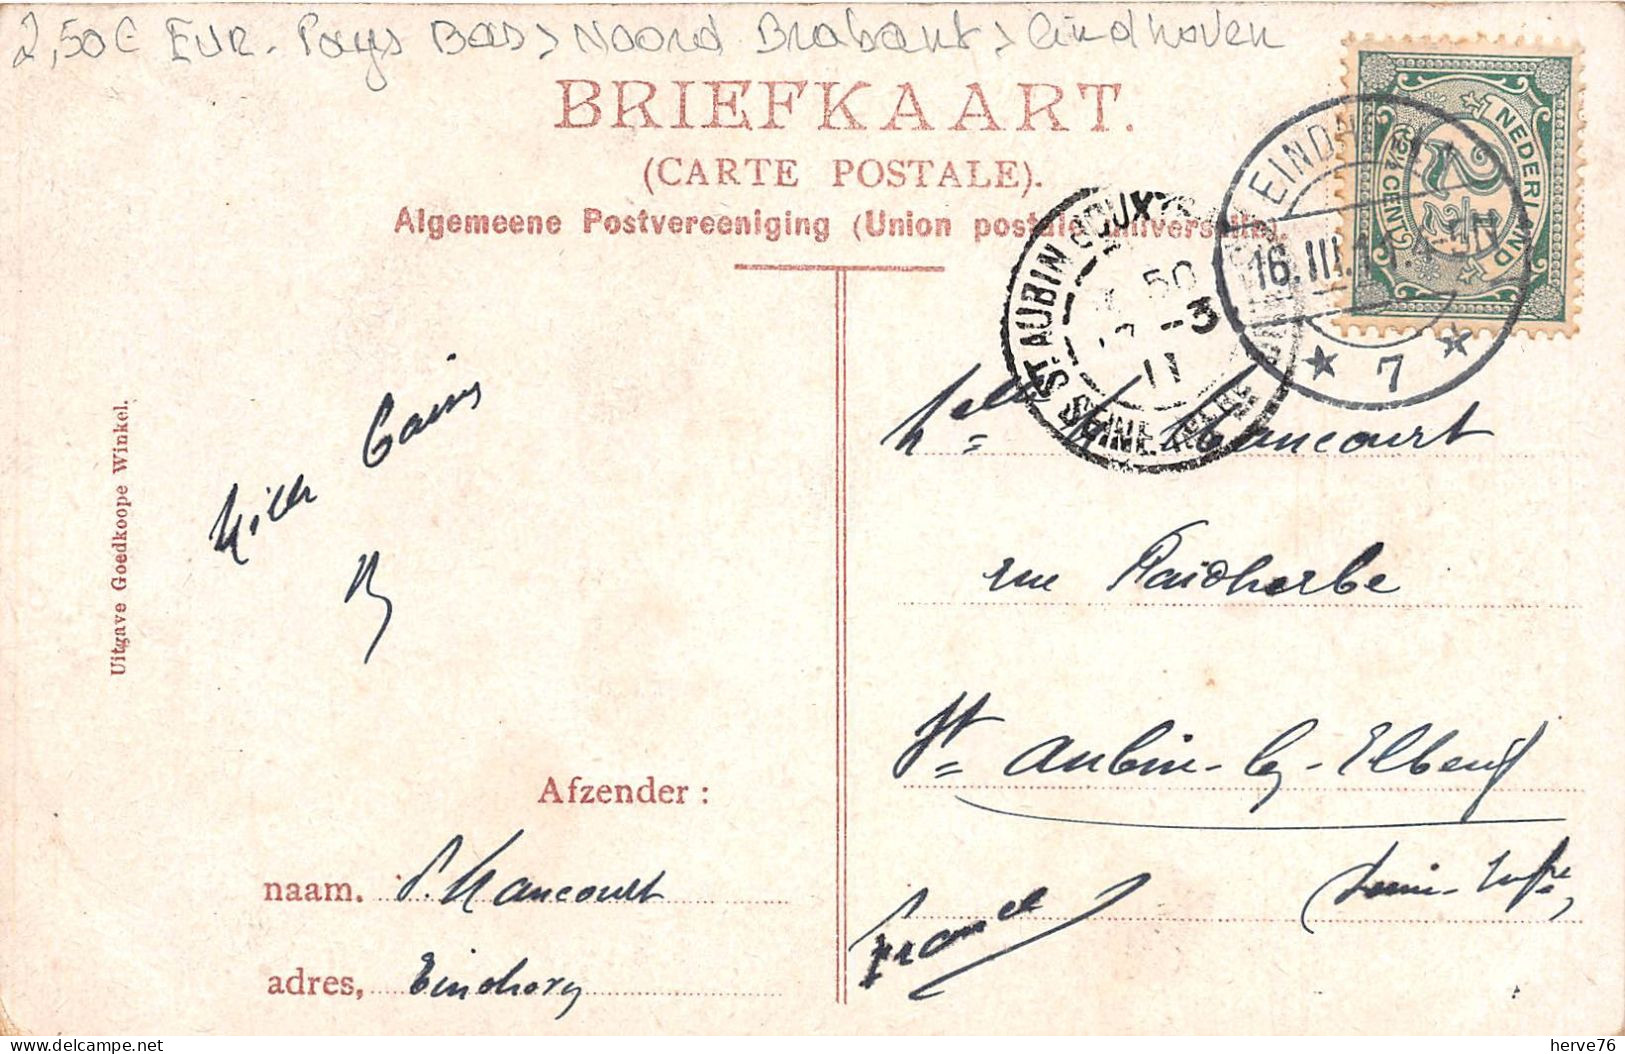 2,50€ EUR. Pays Bas > Noord Brabant > Eindhoven
BRIEFKAART.
(CARTE POSTALE).
Algemeene Postvereeniging (Union postale universelle).
NEDERLAND
2½ CENT
EINDHOVEN
16.III.11.
7
ST AUBIN JOUXTE
50
-3
11
SEINE INFRE
Uitgave Goedkoope Winkel.
Mille
Melle Hancourt
rue Faidherbe
St Aubin-les-Elbeuf
Seine-Infre,
France
Afzender:
naam. Hancourt
adres,
herve76